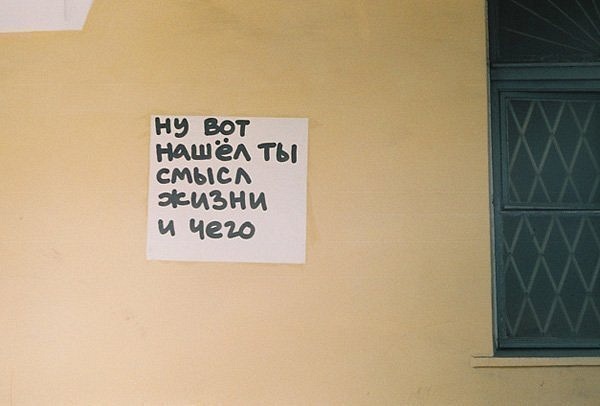 ну вот
нашёл ты
смысл
жизни
и чего